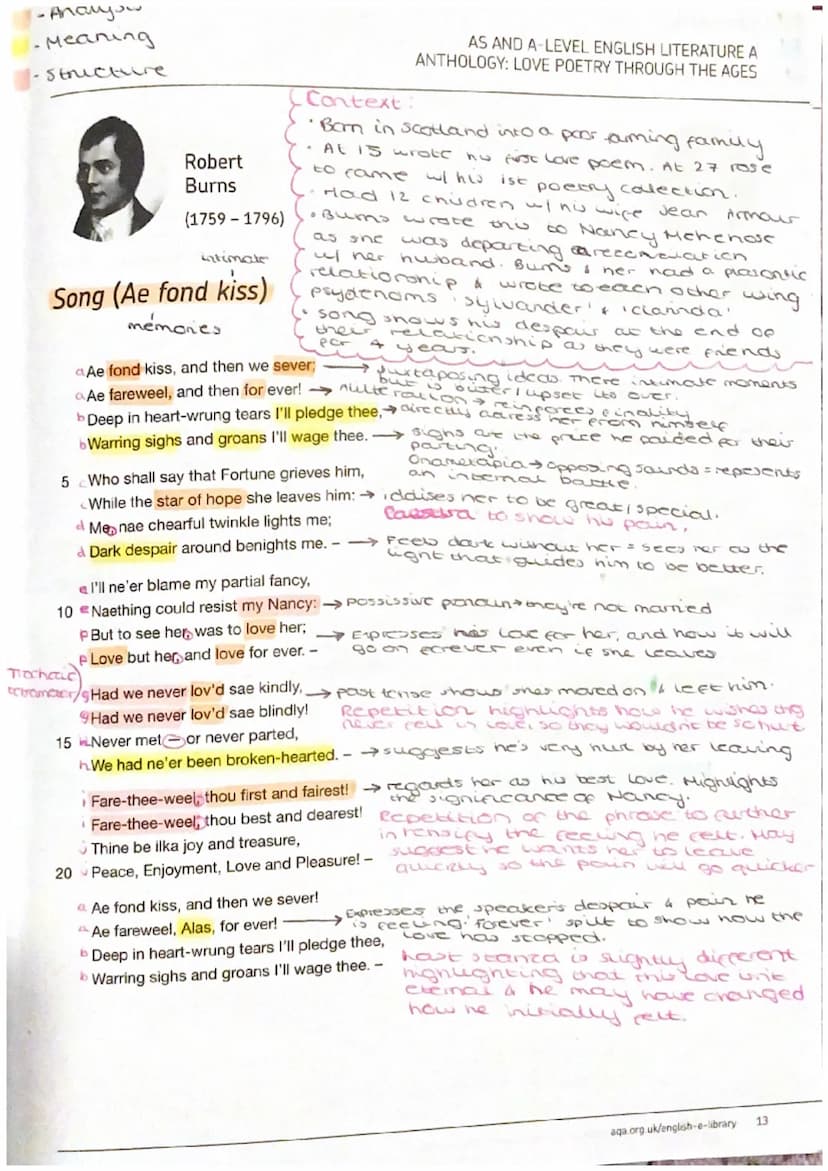 - Analysis
- Meaning
- Structure
AS AND A-LEVEL ENGLISH LITERATURE A
ANTHOLOGY: LOVE POETRY THROUGH THE AGES
Context:
• Born in Scotland into a poor farming family
• At 15 wrote his first love poem. At 27 rose
to fame w/ his 1st poetry collection.
• Had 12 children w/ his wife Jean Armour
• Burns wrote this to Nancy Mchehose
as she was departing
w/ her husband. Burns & her had a platontic
relationship & wrote to each other using
psydenoms 'sylvander' & 'clarinda'
• song shows his despair at the end of
their relationship as they were friends
for 4 years.
Robert
Burns
(1759 – 1796)
intimate
Song (Ae fond kiss)
memories
a Ae fond kiss, and then we sever; → juxtaposing ideas. There intimate moments
but is bitter/upset its over.
a Ae fareweel, and then for ever! → reinforces finality
b Deep in heart-wrung tears I'll pledge thee, → directly adress her from himself
b Warring sighs and groans I'll wage thee. → sighs are the price he paided for their
parting.
Onametapia → opposing sounds = repesents
an internal battle.
5 c Who shall say that Fortune grieves him,
c While the star of hope she leaves him: → iddises her to be great/special.
d Me, nae chearful twinkle lights me; Caesura to show his pain.
d Dark despair around benights me. – → Feels dark without her = sees her as the
light that guides him to be better.
e I'll ne'er blame my partial fancy,
10 e Naething could resist my Nancy: → possissive ponoun → they're not married
f But to see her, was to love her; → Expresses his love for her, and how it will
go on forever even if she leaves
f Love but her, and love for ever. –
Trochaic
tetrameter
g Had we never lov'd sae kindly, → past tense shows shes moved on & left him.
g Had we never lov'd sae blindly! Repetition highlights how he wishes they
never fell in love, so they wouldnt be so hurt
15 h Never met – or never parted,
h We had ne'er been broken-hearted. – → suggests he's very hurt by her leaving
i Fare-thee-weel, thou first and fairest! → regards her as his best love. Highlights
the significance of Nancy.
i Fare-thee-weel, thou best and dearest! Repetition of the phrase to further
intensify the feeling he felt. May
j Thine be ilka joy and treasure, suggest he wants her to leave
20 j Peace, Enjoyment, Love and Pleasure! – quickly so the pain will go quicker
a Ae fond kiss, and then we sever!
a Ae fareweel, Alas, for ever! → Expresses the speaker's despair & pain he
is feeling. 'forever' split to show how the
love has stopped.
b Deep in heart-wrung tears I'll pledge thee,
b Warring sighs and groans I'll wage thee. –
Last stanza is slightly different
highlighting that this love isnt
eternal & he may have changed
how he initially felt.
aqa.org.uk/english-e-library 13